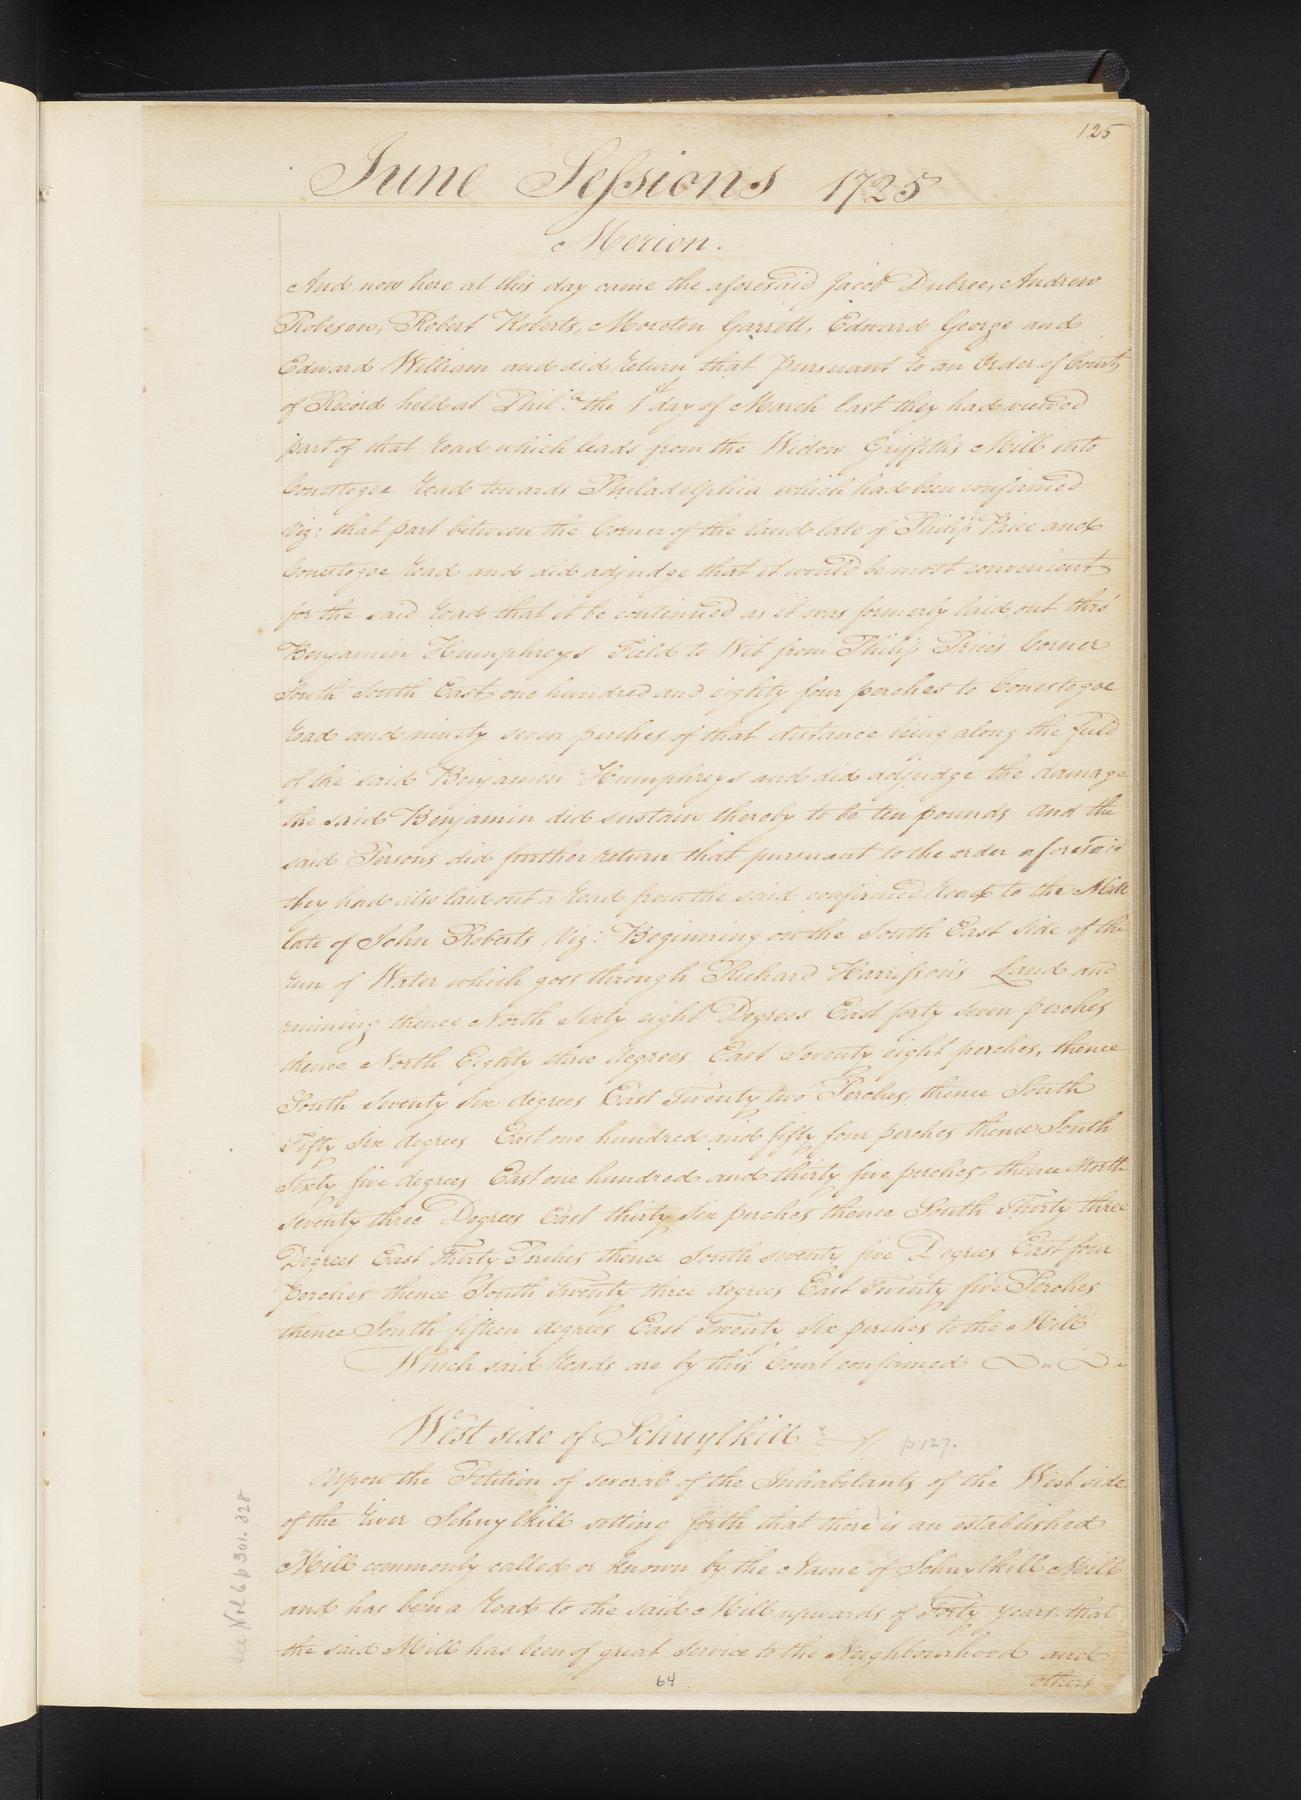 125
June Sessions 1725
Merion.
And now here at this day came the aforesaid Jacob Dubree, Andrew
Robeson, Robert Roberts, Moreton Garrett, Edward George and
Edward William and did return that pursuant to an Order of Court
of Record held at Phil.ia the 1st day of March last they had viewed
part of that road which leads from the Widow Griffiths Mill into
Conestogoe road towards Philadelphia which had been confirmed
Viz: that part between the Corner of the land late of Philip Price and
Conestogoe Road and did adjudge that it would be most convenient
for the said road that it be continued as it was formerly laid out thro'
Benjamin Humphreys Field to Wit from Philip Price's Corner
South South East one hundred and eighty four perches to Conestogoe
road and ninety seven perches of that distance being along the field
of the said Benjamin Humphreys and did adjudge the damage
the said Benjamin did sustain thereby to be ten pounds and the
said Persons did further return that pursuant to the order aforesaid
they had also laid out a road from the said confirmed road to the Mill
late of John Roberts Viz: Beginning on the South East side of the
run of Water which goes through Richard Harrison's Land and
running thence North Sixty eight Degrees East forty seven perches
thence North Eighty three degrees East Seventy eight perches, thence
South Seventy Six degrees East Twenty two Perches, thence South
Fifty Six degrees East one hundred and fifty four perches thence South
Sixty five degrees East one hundred and thirty five perches, thence North
Seventy three Degrees East thirty six perches thence South Thirty three
Degrees East Thirty Perches thence South seventy five Degrees East four
Perches thence South Twenty three degrees East Twenty five Perches
thence South fifteen degrees East Twenty Six perches to the Mill
Which said Roads are by this Court confirmed
West side of Schuylkill p.127.
Upon the Petition of several of the Inhabitants of the West side
of the River Schuylkill setting forth that there is an established
Mill commonly called or known by the Name of Schuylkill Mill
and has been a road to the said Mill upwards of Forty years that
the said Mill has been of great service to the Neighbourhood and
others
64
see Vol 6 p 301. 328